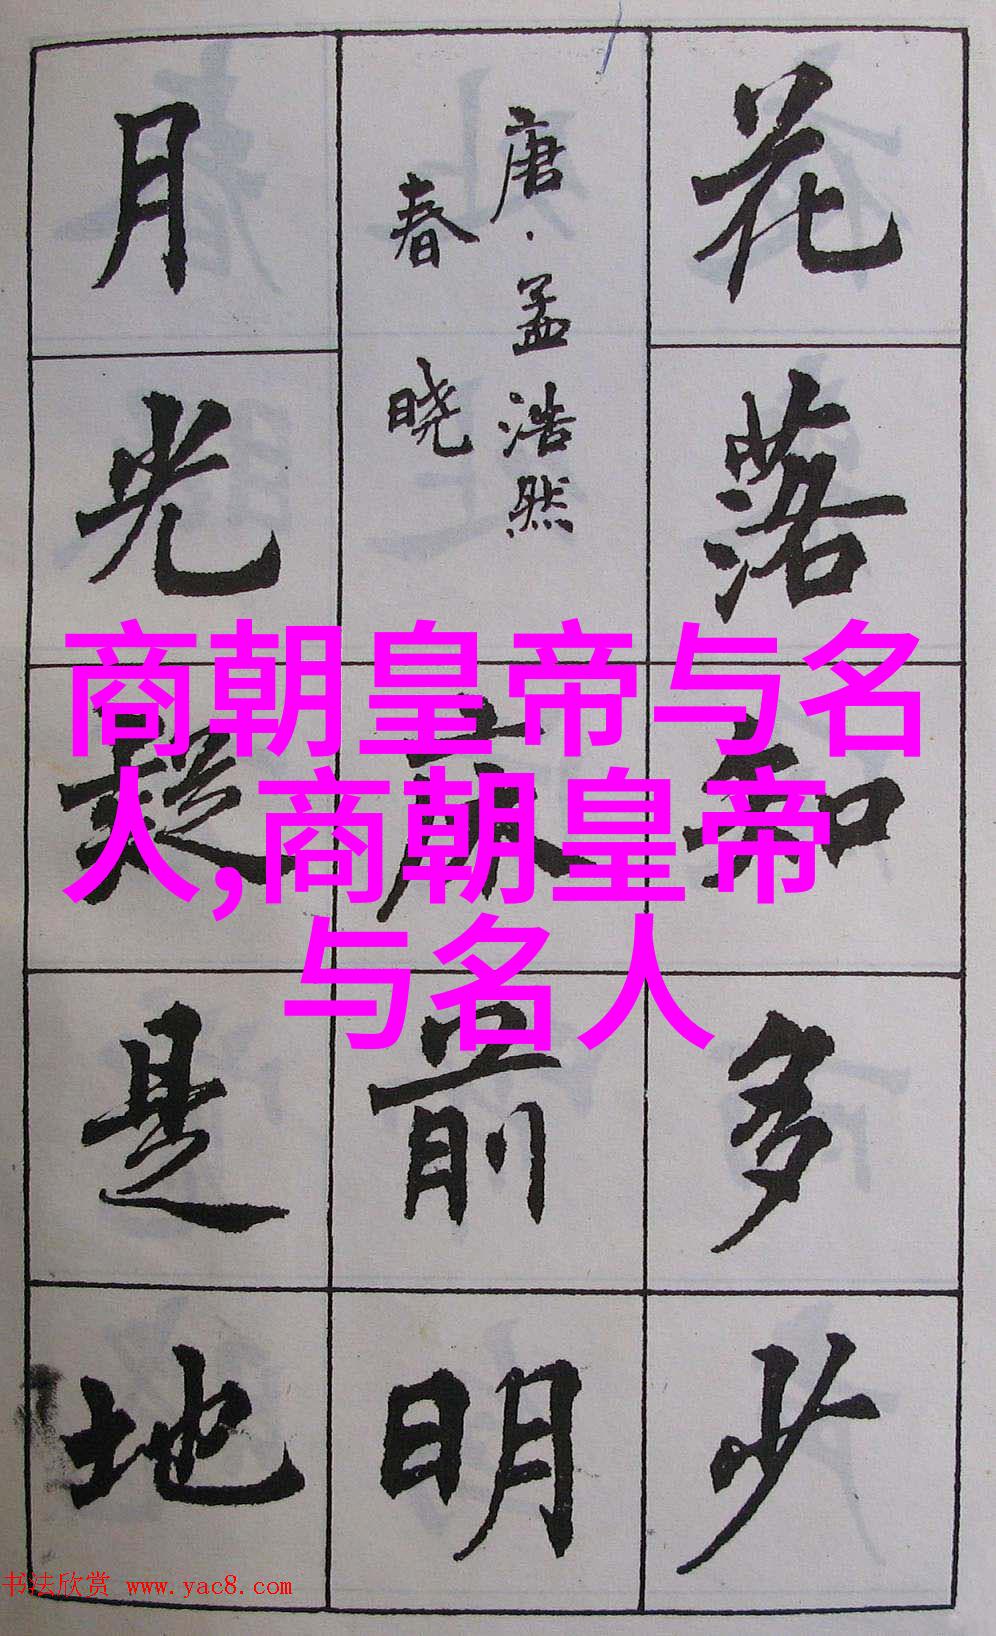 花落知多少
唐·孟浩然
春晓
床前明
月光疑是地
商朝皇帝与名
人,商朝皇帝
与名人
书法欣赏 www.yac8.com